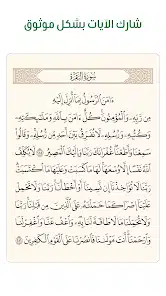 شارك الآيات بشكل موثوق
سُورَةُ البَقَرَةِ
ءَامَنَ ٱلرَّسُولُ بِمَآ أُنزِلَ إِلَيْهِ
مِن رَّبِّهِۦ وَٱلْمُؤْمِنُونَ كُلٌّ ءَامَنَ بِٱللَّهِ وَمَلَٰٓئِكَتِهِۦ
وَكُتُبِهِۦ وَرُسُلِهِۦ لَا نُفَرِّقُ بَيْنَ أَحَدٍ مِّن رُّسُلِهِۦ وَقَالُوا۟
سَمِعْنَا وَأَطَعْنَا غُفْرَانَكَ رَبَّنَا وَإِلَيْكَ ٱلْمَصِيرُ ٢٨٥ لَا يُكَلِّفُ
ٱللَّهُ نَفْسًا إِلَّا وُسْعَهَا لَهَا مَا كَسَبَتْ وَعَلَيْهَا مَا ٱكْتَسَبَتْ
رَبَّنَا لَا تُؤَاخِذْنَآ إِن نَّسِينَآ أَوْ أَخْطَأْنَا رَبَّنَا وَلَا تَحْمِلْ
عَلَيْنَآ إِصْرًا كَمَا حَمَلْتَهُۥ عَلَى ٱلَّذِينَ مِن قَبْلِنَا رَبَّنَا
وَلَا تُحَمِّلْنَا مَا لَا طَاقَةَ لَنَا بِهِۦ وَٱعْفُ عَنَّا وَٱغْفِرْ لَنَا
وَٱرْحَمْنَآ أَنتَ مَوْلَىٰنَا فَٱنصُرْنَا عَلَى ٱلْقَوْمِ ٱلْكَٰفِرِينَ ٢٨٦